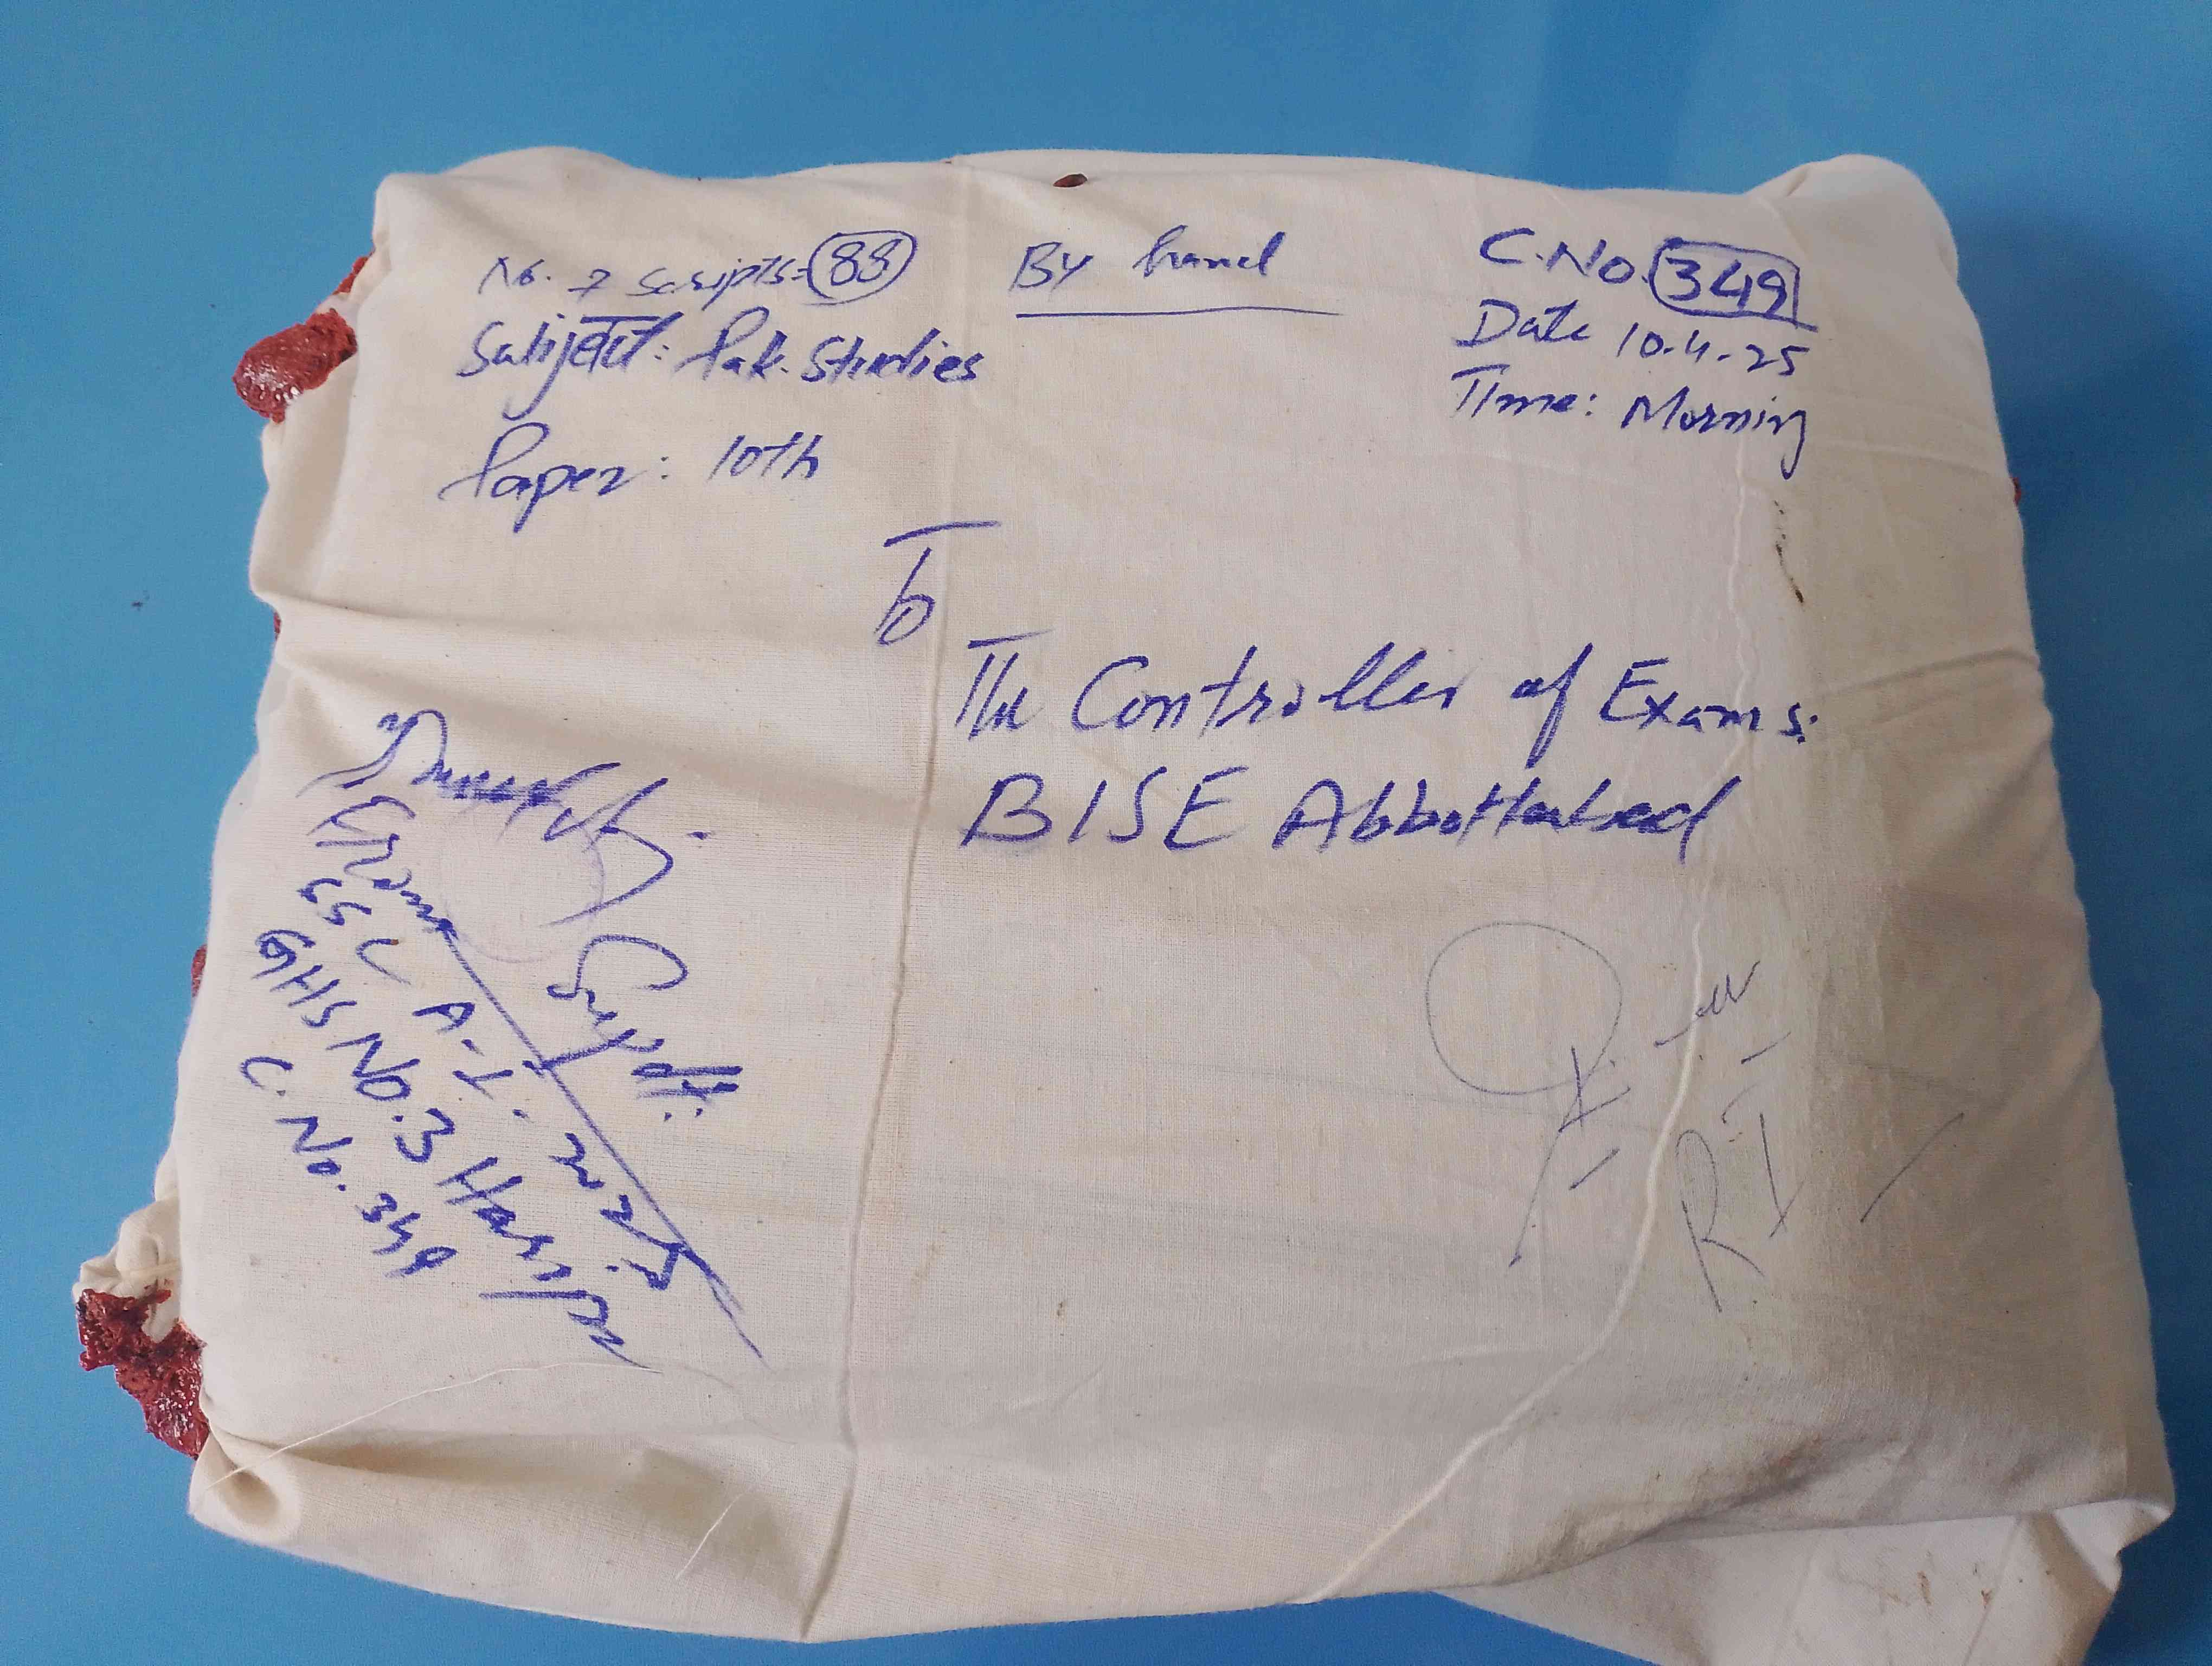 No. of Scripts = 88
By hand
C.No. 349
Subject: Pak. Studies
Date 10.4.25
Paper: 10th
Time: Morning
To
The Controller of Exams:
BISE Abbottabad
Supdt:
SSC A-I. 2025
GHS No.3 Haripur
C. No. 349
RI